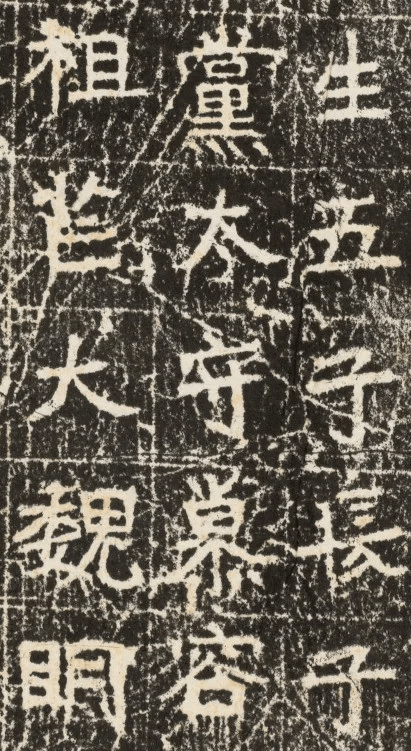 生五子長子
黨太守慕容
祖茫大魏明